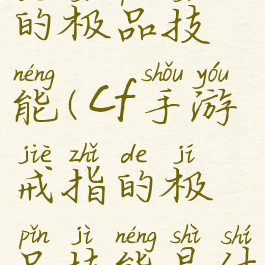 的极品技
néng shǒu yóu
能(cf手游
jiè zhǐ de jí
戒指的极
pǐn jì néng shì shí
品技能是什